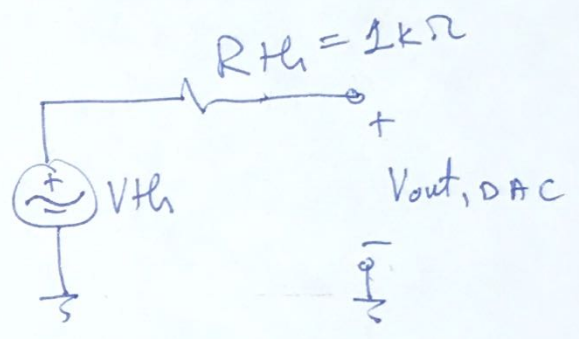 Rth = 1kΩ
+
+
Vth
Vout, DAC
-